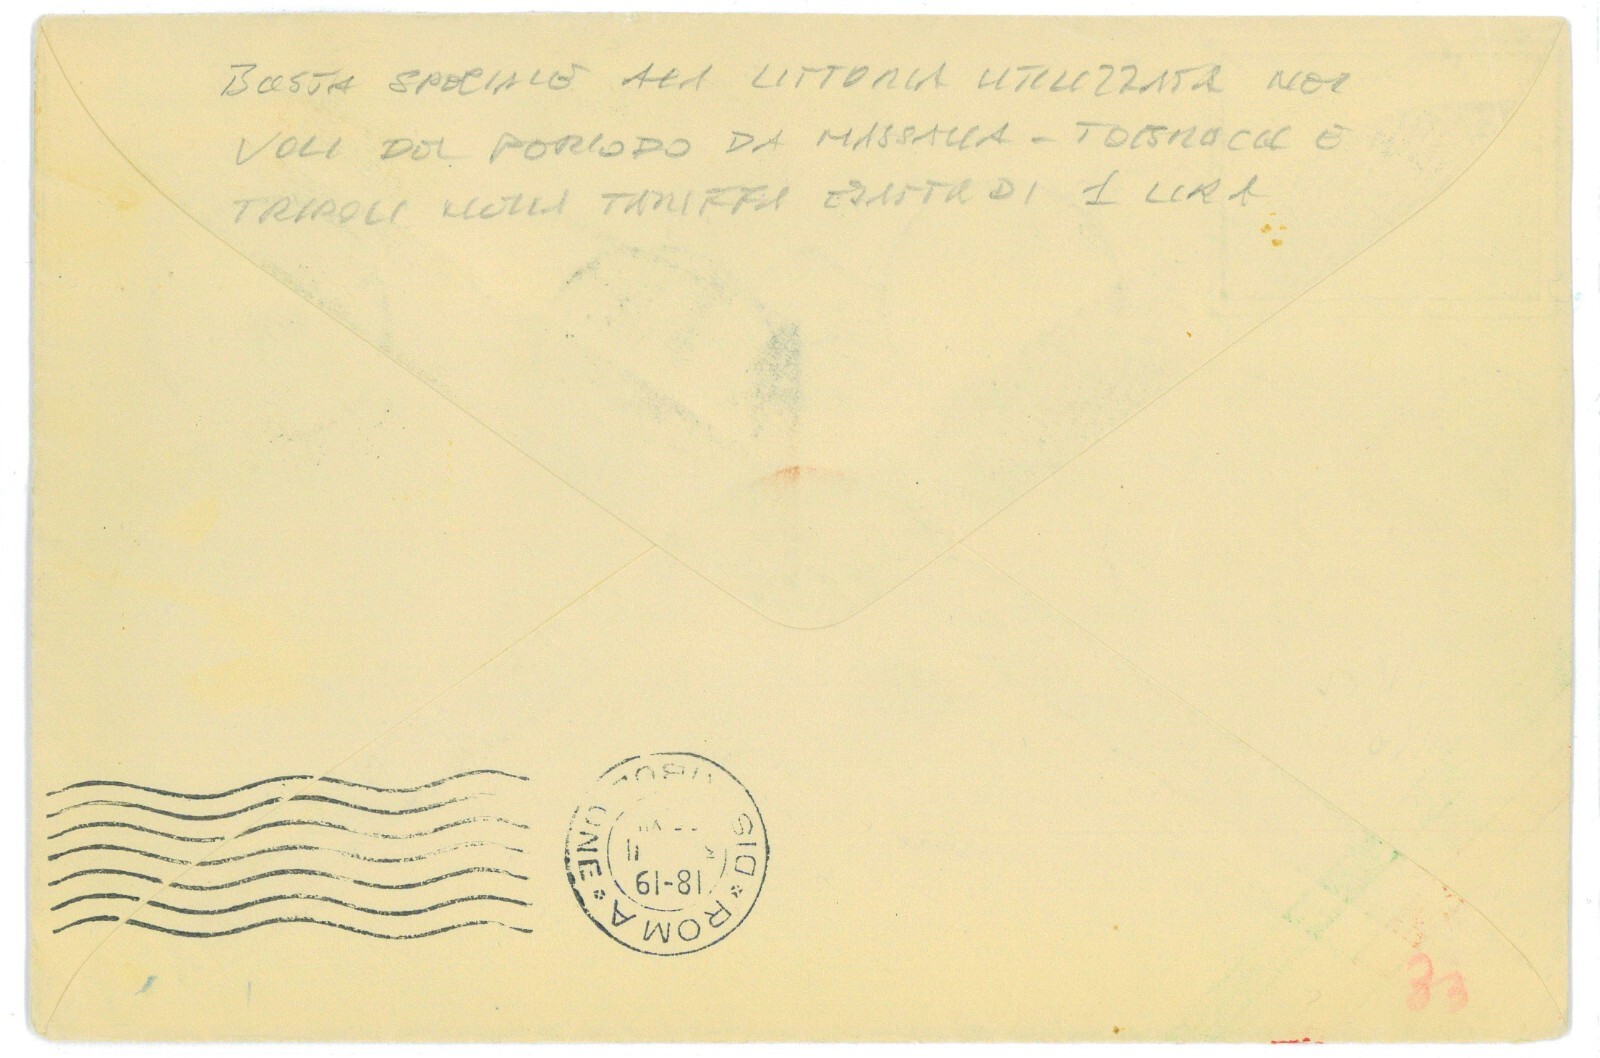 BUSTA SPECIALE ALA LITTORIA UTILIZZATA NEI
VOLI DEL PERIODO DA MASSAUA - TOBRUCH E
TRIPOLI NELLA TARIFFA ESATTA DI 1 LIRA
ROMA
18-19